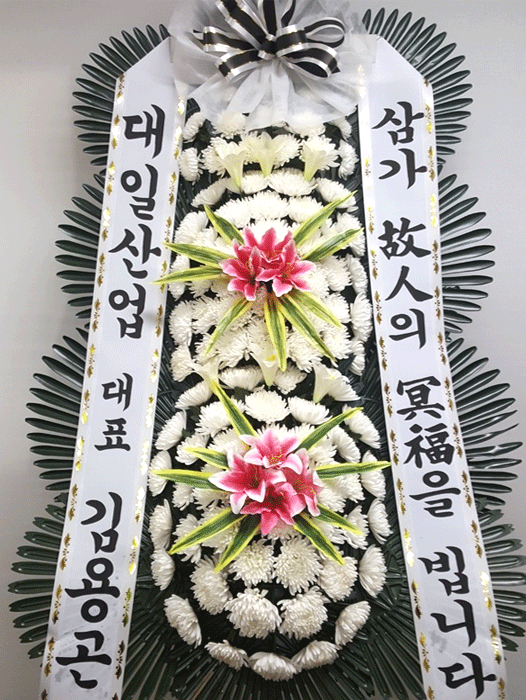 삼가 故人의 冥福을 빕니다
대일산업 대표 김용곤